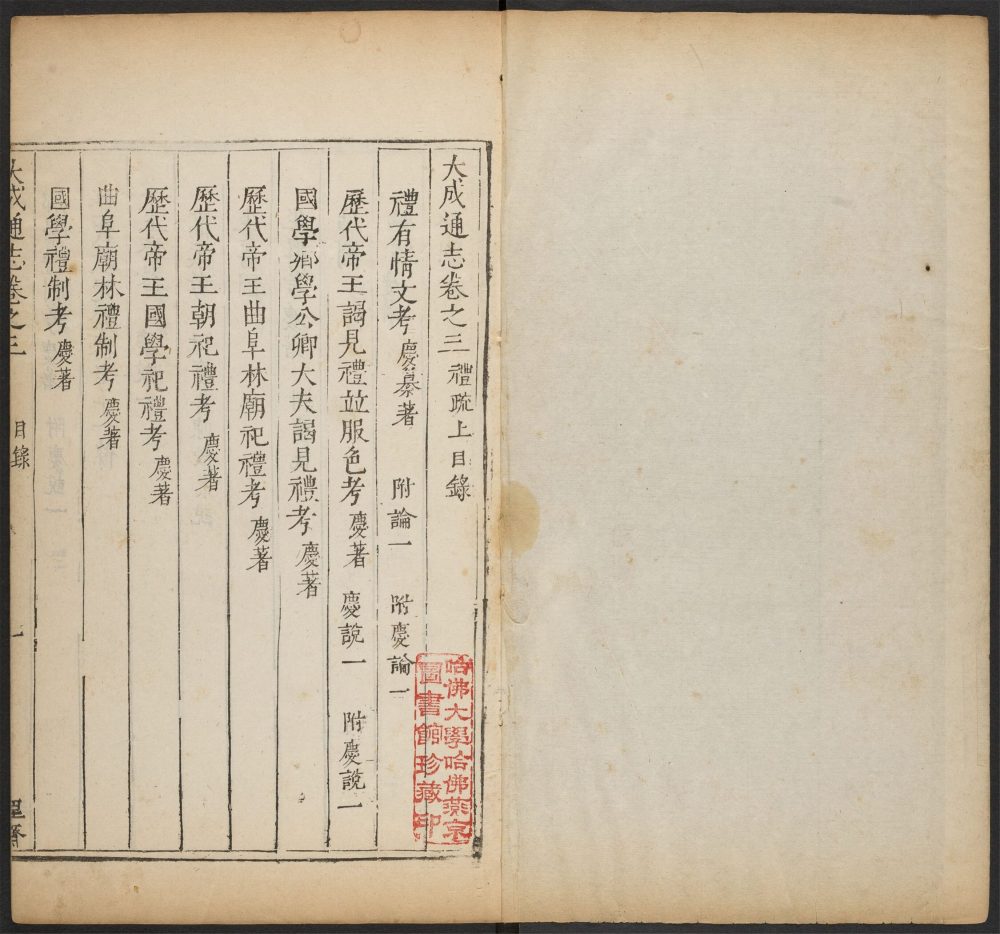 大成通志卷之三 禮疏上目錄
禮有情文考 慶纂著 附論一 附慶論一
歷代帝王謁見禮並服色考 慶著 慶說一 附慶說一
國學鄉學公卿大夫謁見禮考 慶著
歷代帝王曲阜林廟祀禮考 慶著
歷代帝王朝祀禮考 慶著
歷代帝王國學祀禮考 慶著
曲阜廟林禮制考 慶著
國學禮制考 慶著
大成通志卷之三 目錄 一
哈佛大學哈佛燕京
圖書館珍藏印